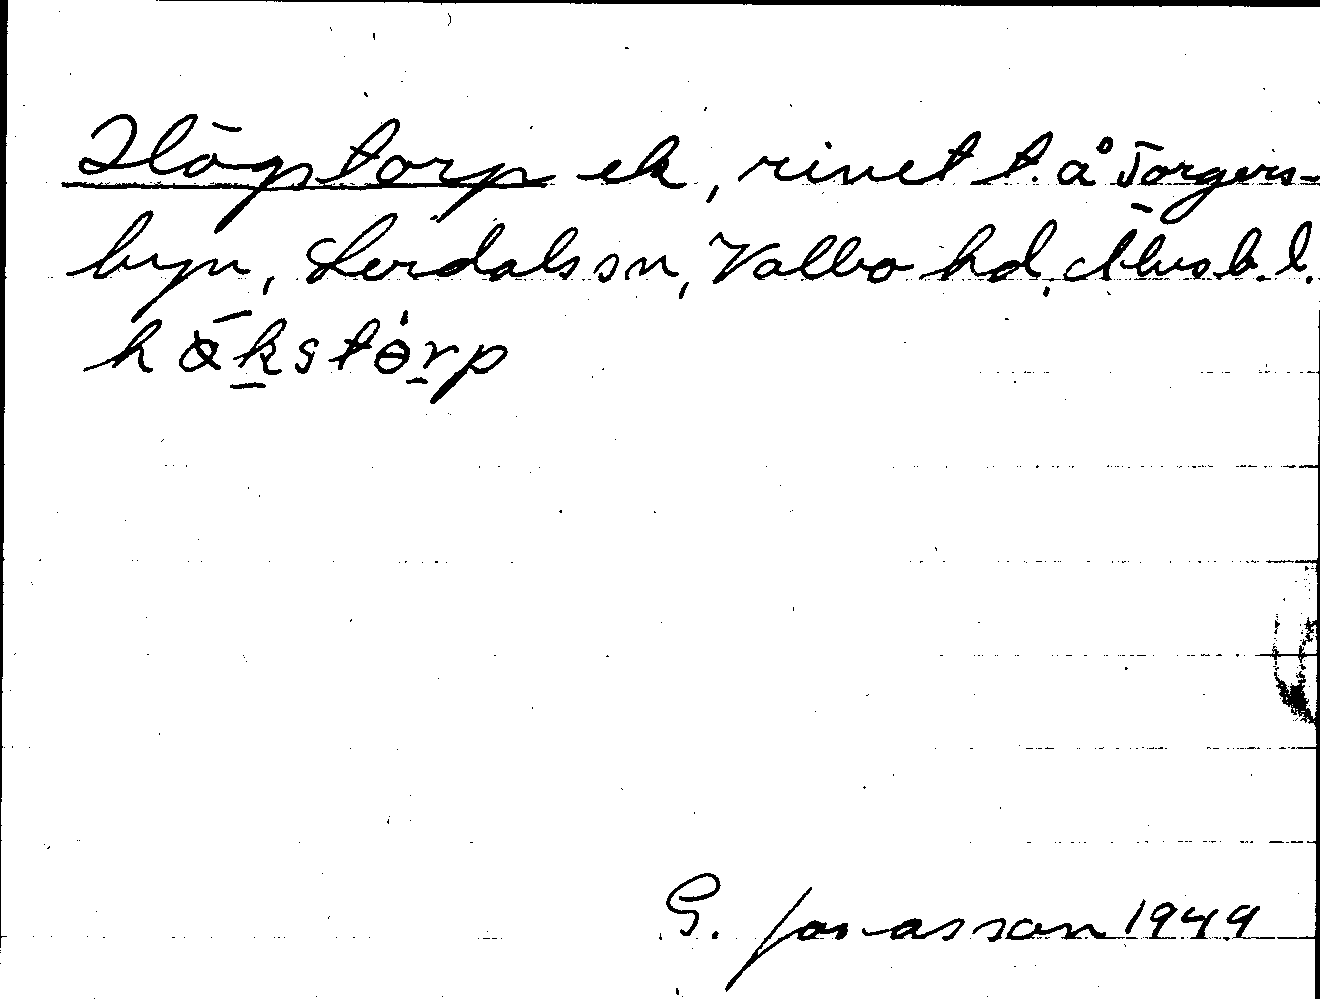 Högstorp ek, rivet t. å Torgers-
byn, Lerdals sn, Valbo hd, Älvsb. l.
hökstorp
G. Jonasson 1949